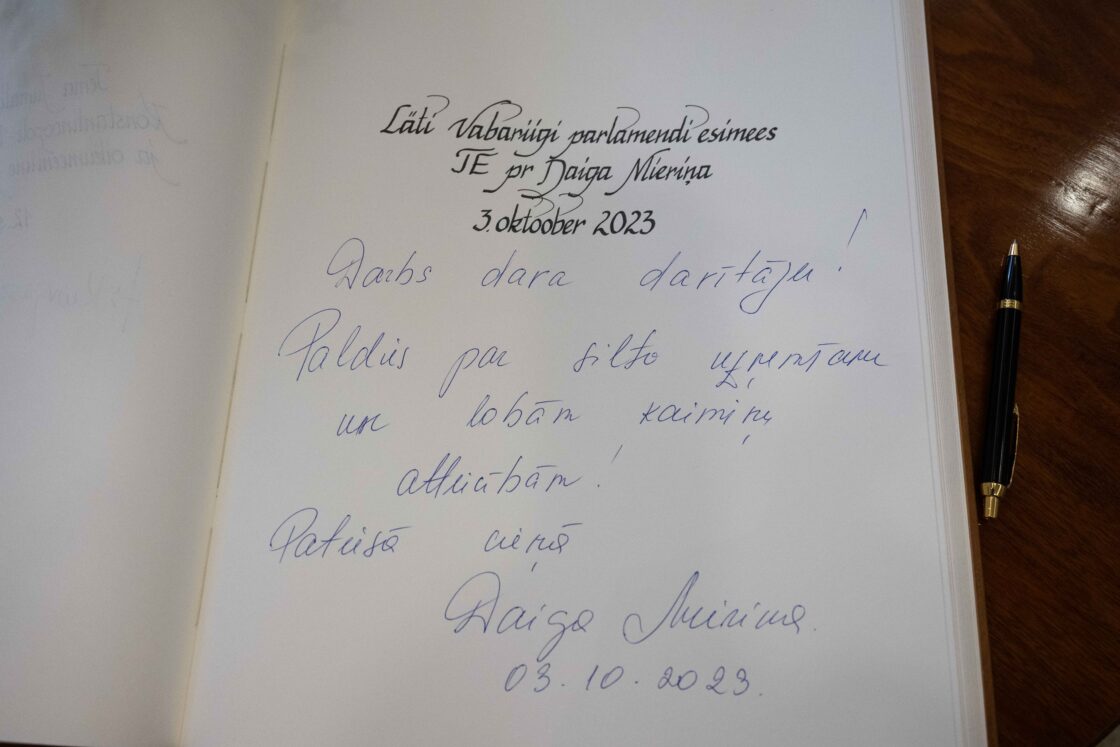 Läti Vabariigi parlamendi esimees
TE pr Daiga Mieriņa
3. oktoober 2023
Darbs dara darītāju!
Paldies par silto uzņemšanu
un labām kaimiņu
attiecībām!
Patiesā cieņā
Daiga Mieriņa
03.10.2023.